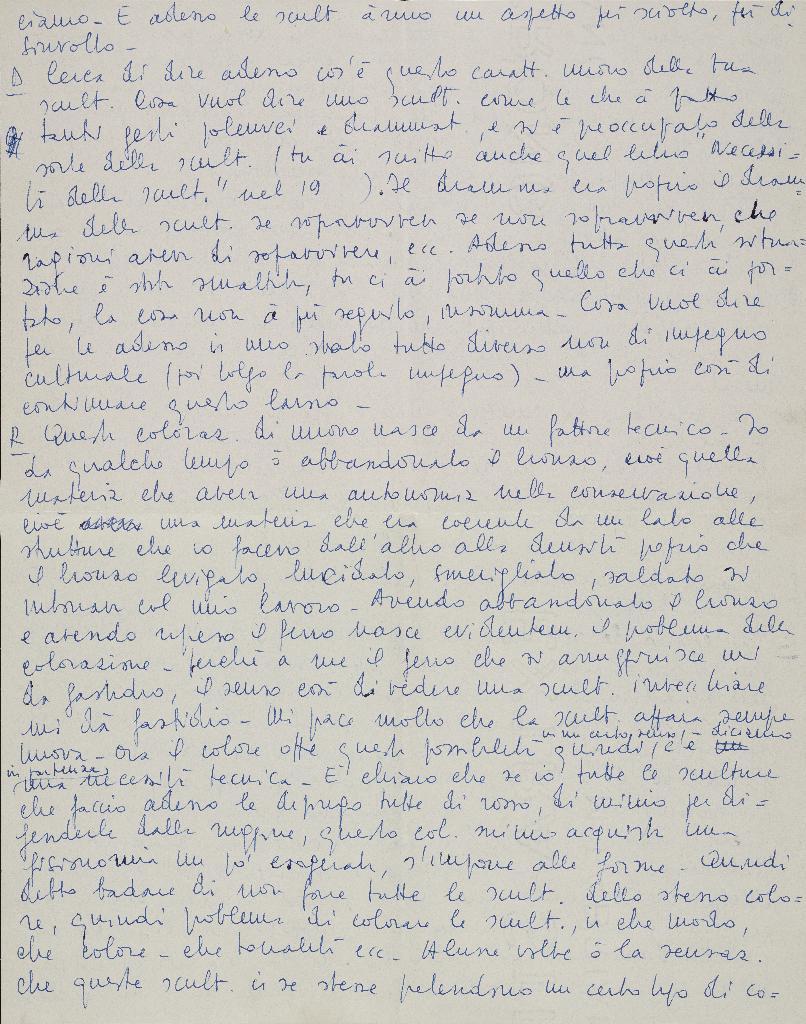 ciamo - E adesso le scult ànno un aspetto più sciolto, più di
sinvolto -
D Cerca di dire adesso cos'è questo caratt. nuovo della tua
scult. Cosa vuol dire uno scult. come te che à fatto
tanti gesti polemici e drammat. e si è preoccupato della
sorte della scult. (tu ài scritto anche quel libro "Necessi-
tà della scult." nel 19 ). Il dramma era proprio il dram-
ma della scult. se sopravviver se non sopravviver, che
ragioni aveva di sopravvivere, ecc. Adesso tutta questa situa-
zione è stata smaltita, tu ci ài portato quello che ci ài por-
tato, la cosa non à più seguito, insomma - Cosa vuol dire
per te adesso in uno stato tutto diverso non di impegno
culturale (poi tolgo la parola impegno) - ma proprio così di
continuare questo lavoro -
R Questa coloraz. di nuovo nasce da un fattore tecnico - Io
da qualche tempo ò abbandonato il bronzo, cioè quella
materia che aveva una autonomia nella conservazione,
cioè una materia che era coerente da un lato alle
strutture che io facevo dall'altro alla densità proprio che
il bronzo levigato, lucidato, smerigliato, saldato si
intonava col mio lavoro - Avendo abbandonato il bronzo
e avendo ripreso il ferro nasce evidentem. il problema della
colorazione - perché a me il ferro che si arrugginisce mi
da fastidio, il senso così di vedere una scult. invecchiare
mi dà fastidio - Mi piace molto che la scult. appaia sempre
nuova - ora il colore offre questa possibilità in un certo senso, quindi, c'è - diciamo
in partenza, una necessità tecnica - E' chiaro che se io tutte le sculture
che faccio adesso le dipingo tutte di rosso, di minio per di-
fenderle dalla ruggine, questo col. minio acquista una
fisionomia un po' esagerata, s'impone alle forme - Quindi
debbo badare di non fare tutte le scult. dello stesso colo-
re, quindi problema di colorare le scult., in che modo,
che colore - che tonalità ecc - Alcune volte ò la sensaz.
che queste scult. in se stesse pretendono un certo tipo di co-